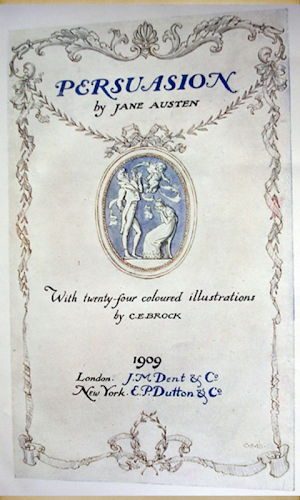 PERSUASION
by JANE AUSTEN
With twenty-four coloured illustrations
by C.E.BROCK
1909
London: J.M.Dent & Co
New York: E.P.Dutton & Co